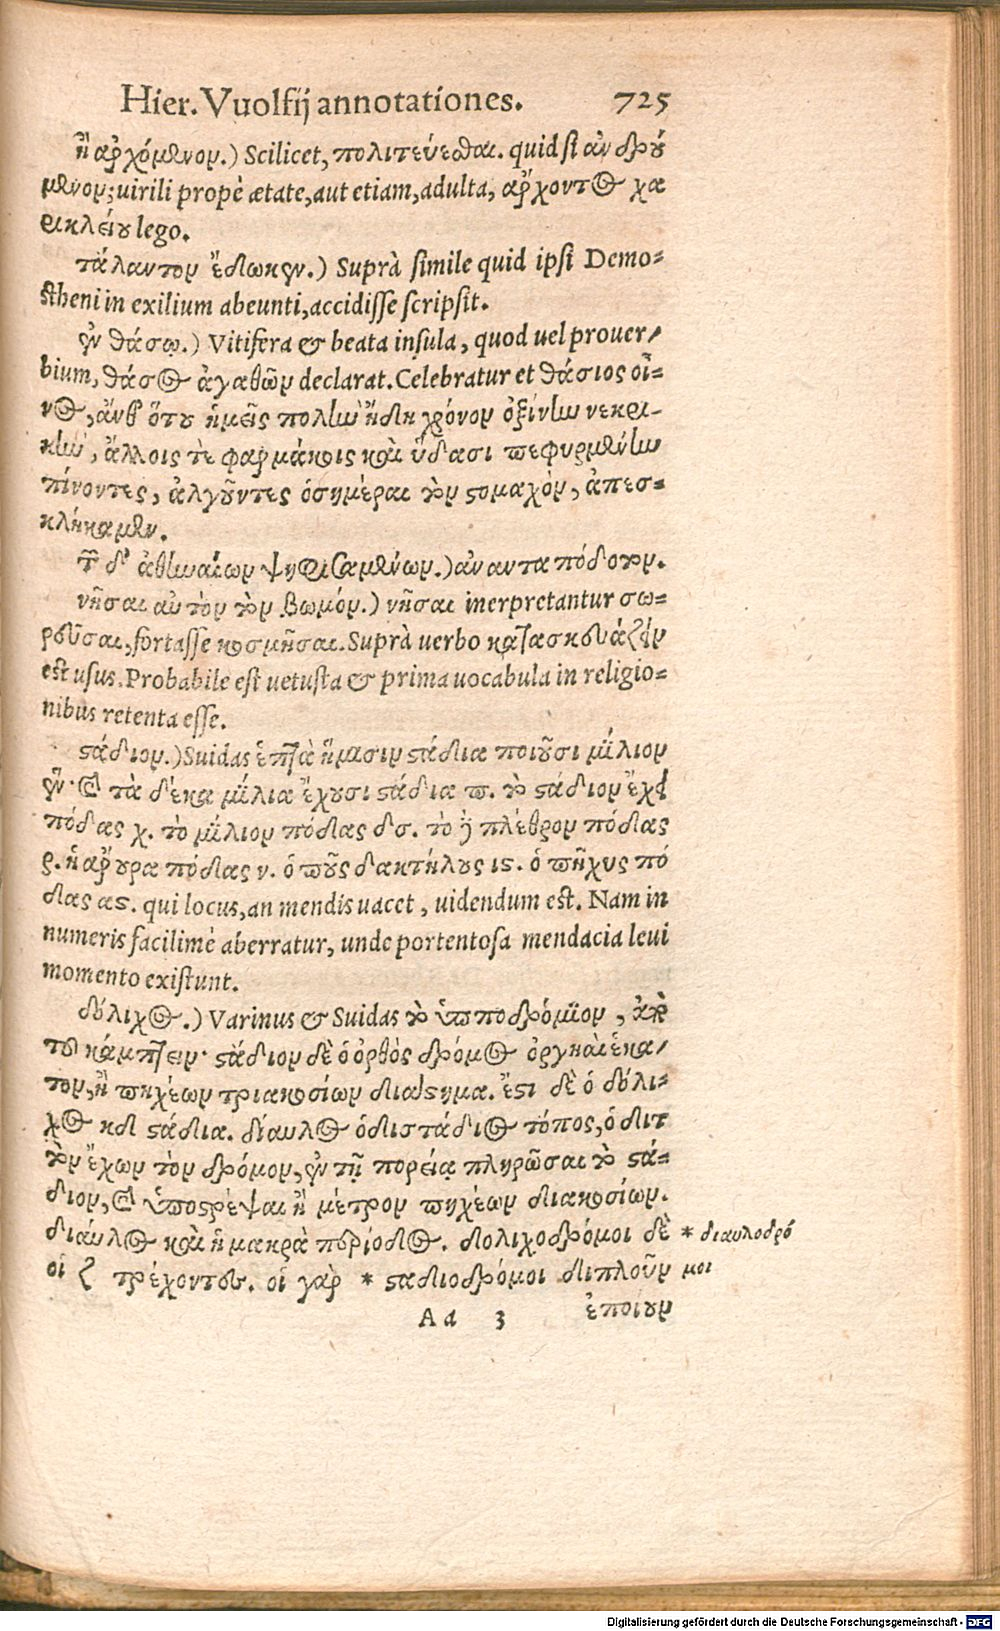 Hier. Vuolfij annotationes. 725
ἢ ἀρχόμενον.) Scilicet, πολιτεύεσθαι. quid si ἀνδρού
μενον; uirili propè ætate, aut etiam, adulta, ἄρχοντος χα
ρικλείου lego.
τάλαντον ἔδωκεν.) Suprà simile quid ipsi Demo-
stheni in exilium abeunti, accidisse scripsit.
ἐν θάσῳ.) Vitifera & beata insula, quod uel prouer-
bium, θάσος ἀγαθῶν declarat. Celebratur et θάσιος οἶ-
νος, ἀνθ' ὅτου ἡμεῖς πολὺν ἤδη χρόνον ὀξίνην νεκρι-
κὴν, ἄλλοις τὲ φαρμάκοις καὶ ὕδασι πεφυρμένην
πίνοντες, ἀλγοῦντες ὁσημέραι τὸν στομαχὸν, ἀπεσ-
κλήκαμεν.
τῶν δ' ἀθηναίων ψηφισαμένων.) ἀνανταπόδοτον.
νῆσαι αὐτὸν τὸν βωμόν.) νῆσαι inerpretantur σω-
ρεῦσαι, fortasse κοσμῆσαι. Suprà uerbo κατασκευάζειν
est usus. Probabile est uetusta & prima uocabula in religio-
nibus retenta esse.
στάδιον.) Suidas ἑπτὰ ἥμισιν στάδια ποιοῦσι μίλιον
ἕν· καὶ τὰ δέκα μίλια ἔχουσι στάδια π. τὸ στάδιον ἔχει
πόδας χ. τὸ μίλιον πόδας δσ. τὸ δὲ πλέθρον πόδας
ρ. ἡ ἄρουρα πόδας ν. ὁ ποῦς δακτήλους ις. ὁ πῆχυς πό
δας ας. qui locus, an mendis uacet, uidendum est. Nam in
numeris facilimè aberratur, unde portentosa mendacia leui
momento existunt.
δόλιχος.) Varinus & Suidas τὸ ὑπποδρόμιον, ἀπὸ
τοῦ κάμπτειν· στάδιον δὲ ὁ ὀρθὸς δρόμος ὀργυιὰι ἑκα-
τον, ἢ πηχέων τριακοσίων διάστημα. ἔστι δὲ ὁ δόλι-
χος κδ στάδια. δίαυλος ὁ διστάδιος τόπος, ὁ διτ
τὸν ἔχων τὸν δρόμον, ἐν τῇ πορείᾳ πληρῶσαι τὸ στά-
διον, καὶ ὑποστρέψαι ἢ μέτρον πηχέων διακοσίων.
διάυλος καὶ ἡ μακρὰ περίοδος. δολιχοδρόμοι δὲ * διαυλοδρό
οἱ ζ τρέχοντες. οἱ γὰρ * σταδιοδρόμοι διπλοῦν μοι
Aa 3 ἐποιουν
Digitalisierung gefördert durch die Deutsche Forschungsgemeinschaft - DFG